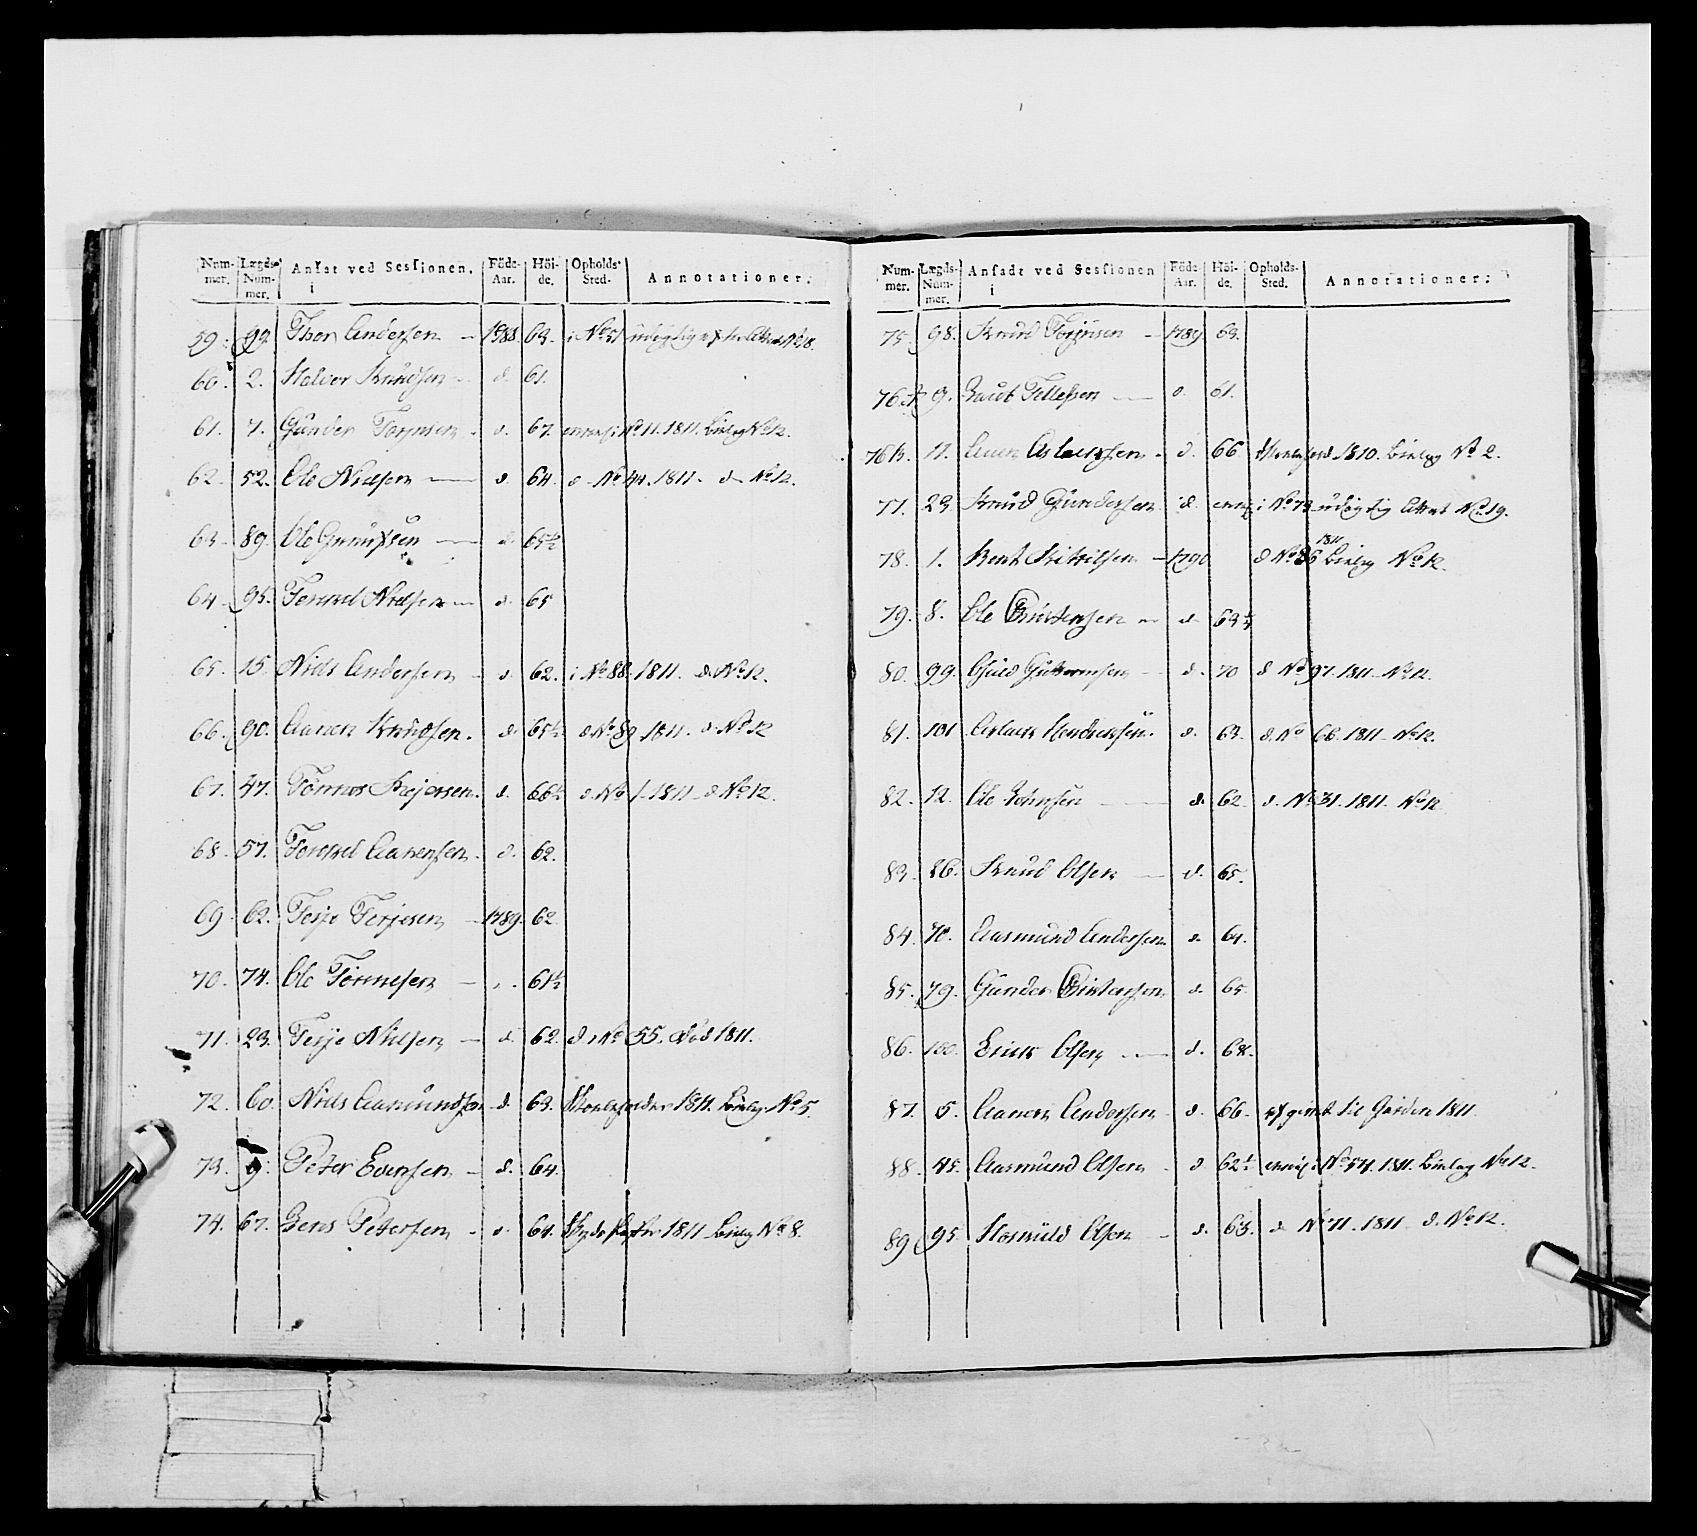 Num- Lægds- Ansat ved Sessionen. Föde- Höi- Opholds- Annotationer.
mer. Num- i Aar. de. Sted.
mer.
59. 99. Thor Andersen 1788 63. i No 51 udygtig Attest No 18.
60. 2. Halvor Knudsen d. 61.
61. 7. Gunder Torjusen d. 67. i No 11. 1811. Bielag No 12.
62. 52. Ole Nielsen d. 64. d. No 44. 1811. d. No 12.
63. 89. Ole d. 65½
64. 95. Torkel Nielsen d. 65
65. 15. Niels Andersen d. 62. i No 88. 1811. d. No 12.
66. 90. Aanon Knudsen. d. 65½ d. No 89. 1811. d. No 12
67. 47. Tönnes d. 66½ d. No 1. 1811. d. No 12.
68. 57. Torkel Aanensen. d. 62.
69. 62. Terje Terjesen 1789. 62
70. 74. Ole Tönnesen 61½
71. 23. Terje Nielsen d. 62. d. No 55. död 1811.
72. 60. Niels Aamundsen d. 63. 1811. Bielag No 5.
73. 9. Peter Evensen d. 64.
74. 67. Jens Petersen d. 64. 1811 Bielag No 8.
Num- Lægds- Ansadt ved Sessionen Föde- Höi- Opholds- Annotationer.
mer. Num- i Aar. de. Sted.
mer.
75. 98. Knud Torjusen 1789 63.
76 A. 9. Tellefsen d. 61.
76 B. 11. Aanen Aslacksen d. 66 1810. Bielag No 2.
77. 23. Knud Gundersen d. i No 73 udygtig Attest No 19.
1811
78. 1. Bent Kittilsen 1790 d No 86 Bielag No 12.
79. 8. Ole Christensen d. 63¼
80. 99. Guttormsen d. 70 d No 97. 1811. No 12.
81. 101 Aslack Hendricksen. d. 63. d. No 66. 1811. No 12.
82. 12. Ole Johnsen d. 62 d. No 31. 1811. No 12
83. 26. Knud Olsen d. 65.
84. 70. Aasmund Andersen d. 64.
85. 79. Gunder Christensen d. 65
86. 100. Erick Olsen d.
87. 5. Aanen Andersen d. 66. til Garden 1811.
88. 45. Aasmund Olsen d. 62½ No 54. 1811. Bielag No 12.
89. 95. Olsen d. 63. d No 71. 1811. d. No 12.